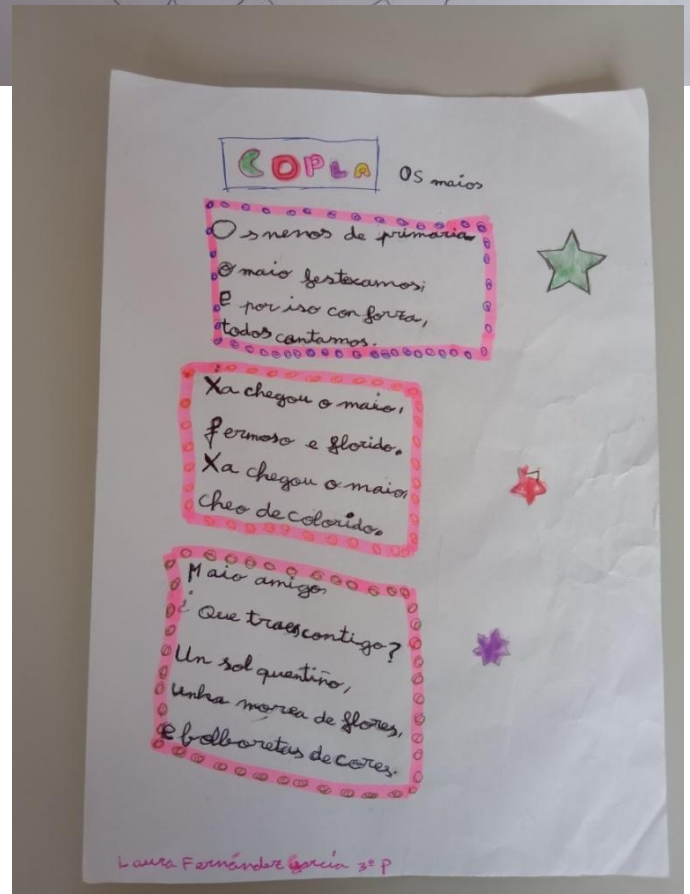 COPLA OS maios
Os nenos de primaria
o maio festexamos;
E por iso con forza,
todos cantamos.
Xa chegou o maio,
fermoso e florido.
Xa chegou o maio,
cheo de colorido.
Maio amigo,
¿Que traes contigo?
Un sol quentiño,
unha morea de flores,
e bolboretas de cores.
Laura Fernández García 3º P